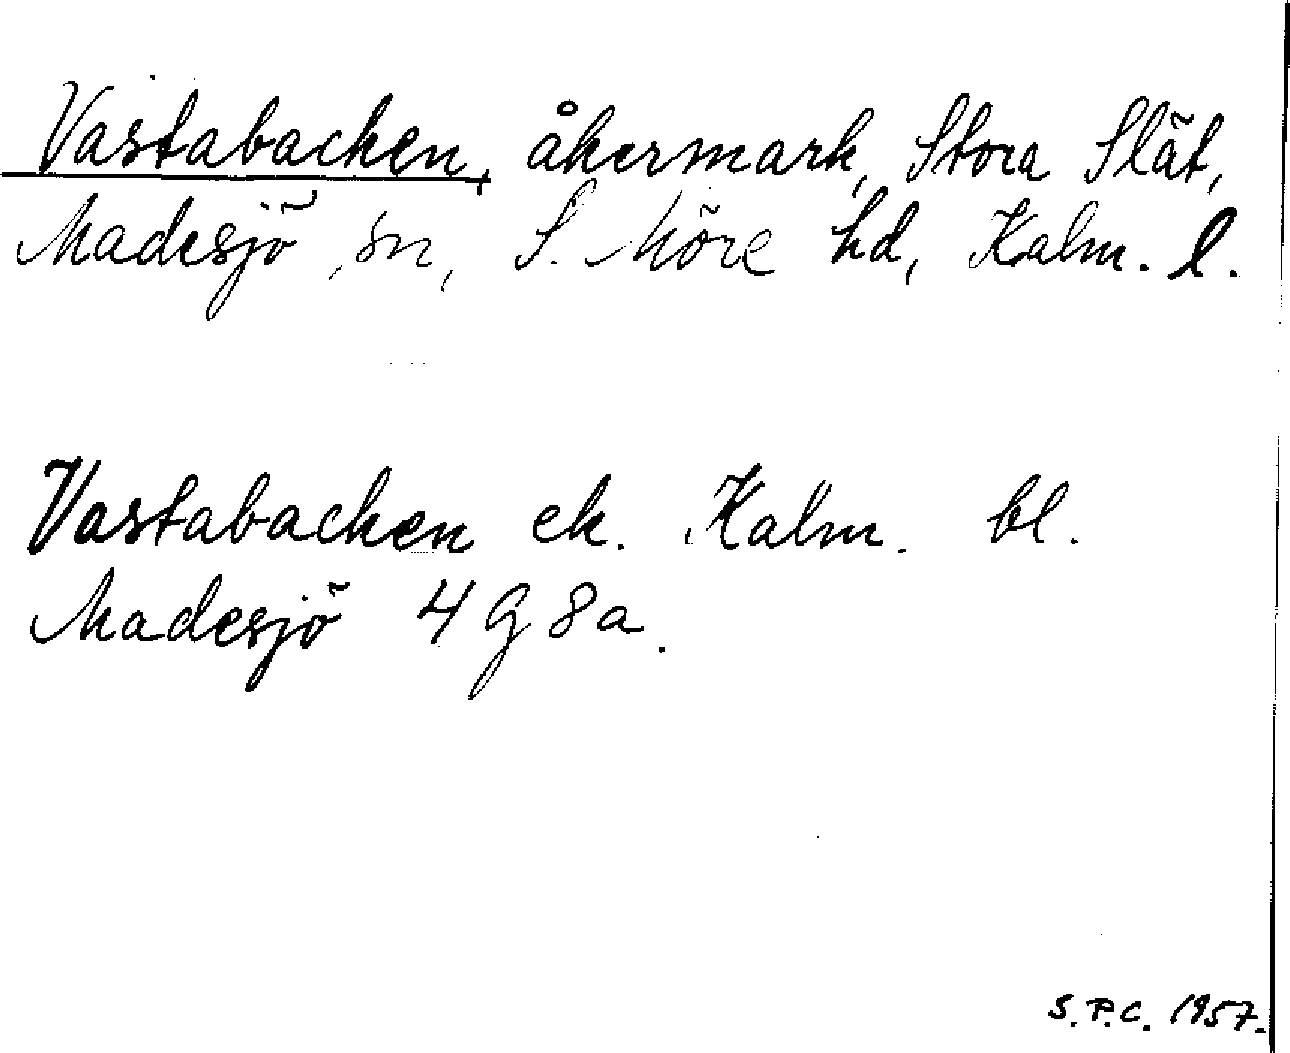 Vastabacken, åkermark, Stora Slät,
Madesjö sn, S. Möre hd, Kalm. l.
Vastabacken ek. Kalm. bl.
Madesjö 4 G 8a.
S.P.C. 1957.